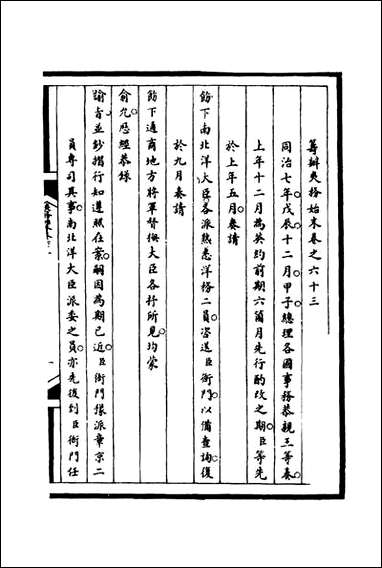 籌辦夷務始末卷之六十三
同治七年戊辰十二月甲子總理各國事務恭親王等奏
上年十二月為英約前期六箇月先行酌改之期臣等先
於上年五月奏請
飭下南北洋大臣各派熟悉洋務二員咨送臣衙門以備查詢復
於九月奏請
飭下通商地方將軍督撫大臣各抒所見均蒙
俞允恩經恭錄
諭旨並鈔摺行知遵照在案嗣因為期已近臣衙門張派章京二
員專司其事南北洋大臣派委之員亦先後到臣衙門任